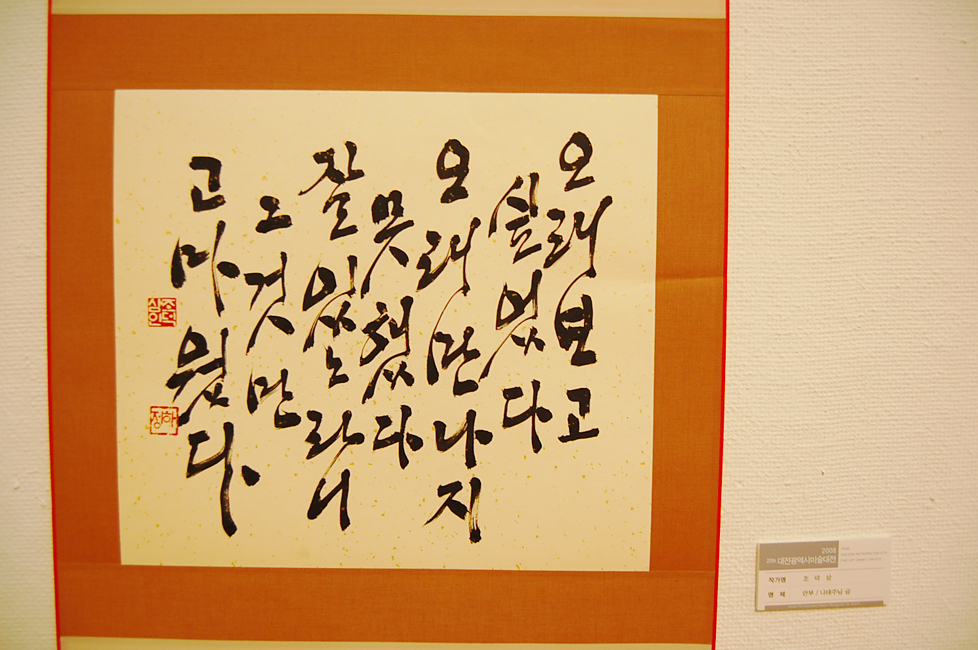 오래보고
싶었다
오래만나지
못했다
잘있노라니
그것만
고마웠다
하정
2008
대전광역시미술대전
작가명 조 덕
명 제 안부 / 나태주님 글